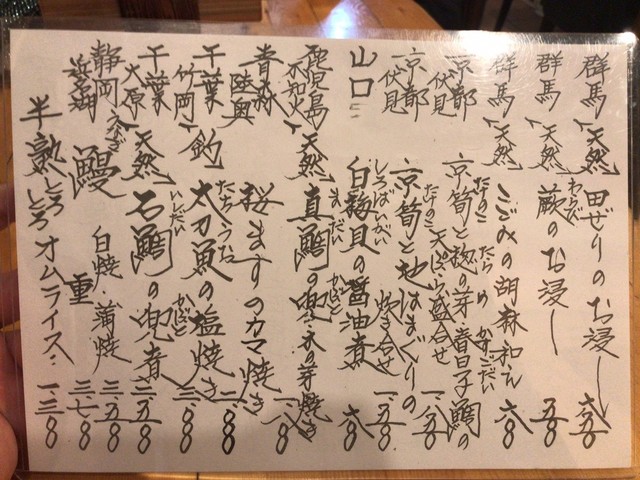 群馬 天然 田ぜりのお浸し 六五〇
群馬 天然 蕨のお浸し 五〇〇
わらび
群馬 天然 こごみの胡麻和え 六〇〇
京都 伏見 京筍と惣の芽 春日子鯛の
たけのこ たら め かすごだい
天ぷら盛合せ 一、八五〇
京都 伏見 京筍と地はまぐりの
たけのこ
炊き合せ 一、五〇〇
山口 白梅貝の醤油煮 六〇〇
しろばいがい
鹿児島 不知火 天然 真鯛の兜 木の芽焼き 一、八〇〇
まだい かぶと
青森 陸奥 桜ますのカマ焼き
千葉 竹岡 釣 太刀魚の塩焼き 二、八〇〇
たちうお
千葉 大原 天然 石鯛の兜煮 二、五〇〇
いしだい かぶと
静岡 浜名湖 鰻 白焼・蒲焼 三、五〇〇
うなぎ
重 三、七〇〇
半熟とろとろオムライス 一、三〇〇